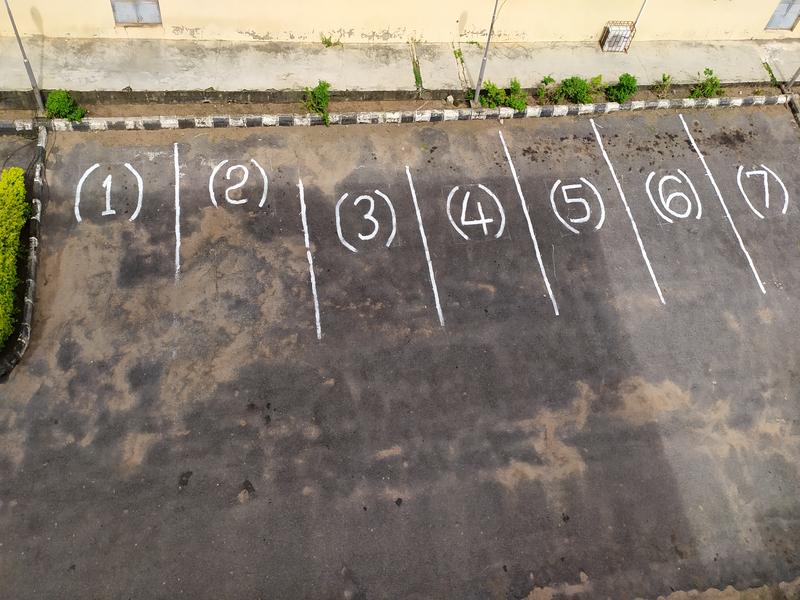 (1) (2) (3) (4) (5) (6) (7)